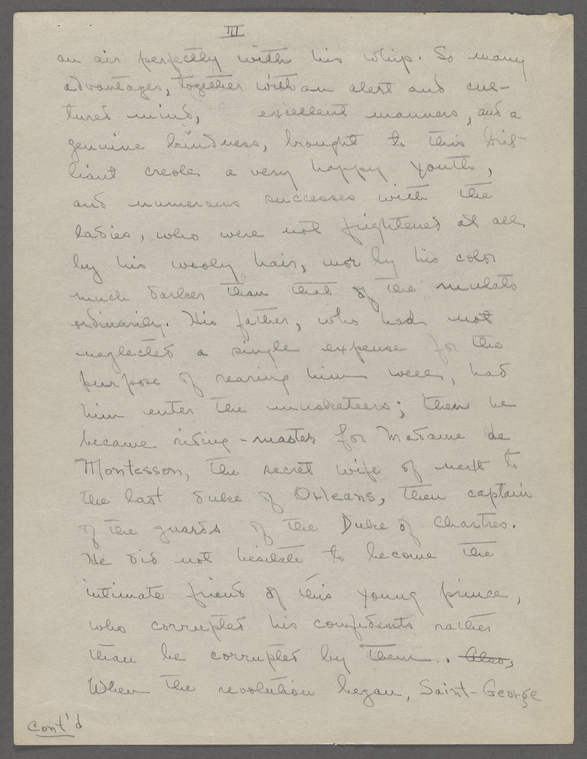 III
an air perfectly with his whip. So many
advantages, together with an alert and cul-
tured mind, excellent manners, and a
genuine kindness, brought to this bril-
liant creole a very happy youth,
and numerous successes with the
ladies, who were not frightened at all
by his wooly hair, nor by his color
much darker than that of the mulato
ordinarily. His father, who had not
neglected a single expense for the
purpose of rearing him well, had
him enter the musketeers; then he
became riding-master for Madame de
Montesson, the secret wife of next to
the last duke of Orleans, then captain
of the guards of the Duke of Chartres.
He did not hesitate to become the
intimate friend of this young prince,
who corrupted his confidents rather
than be corrupted by them. Also,
When the revolution began, Saint-George
Cont'd